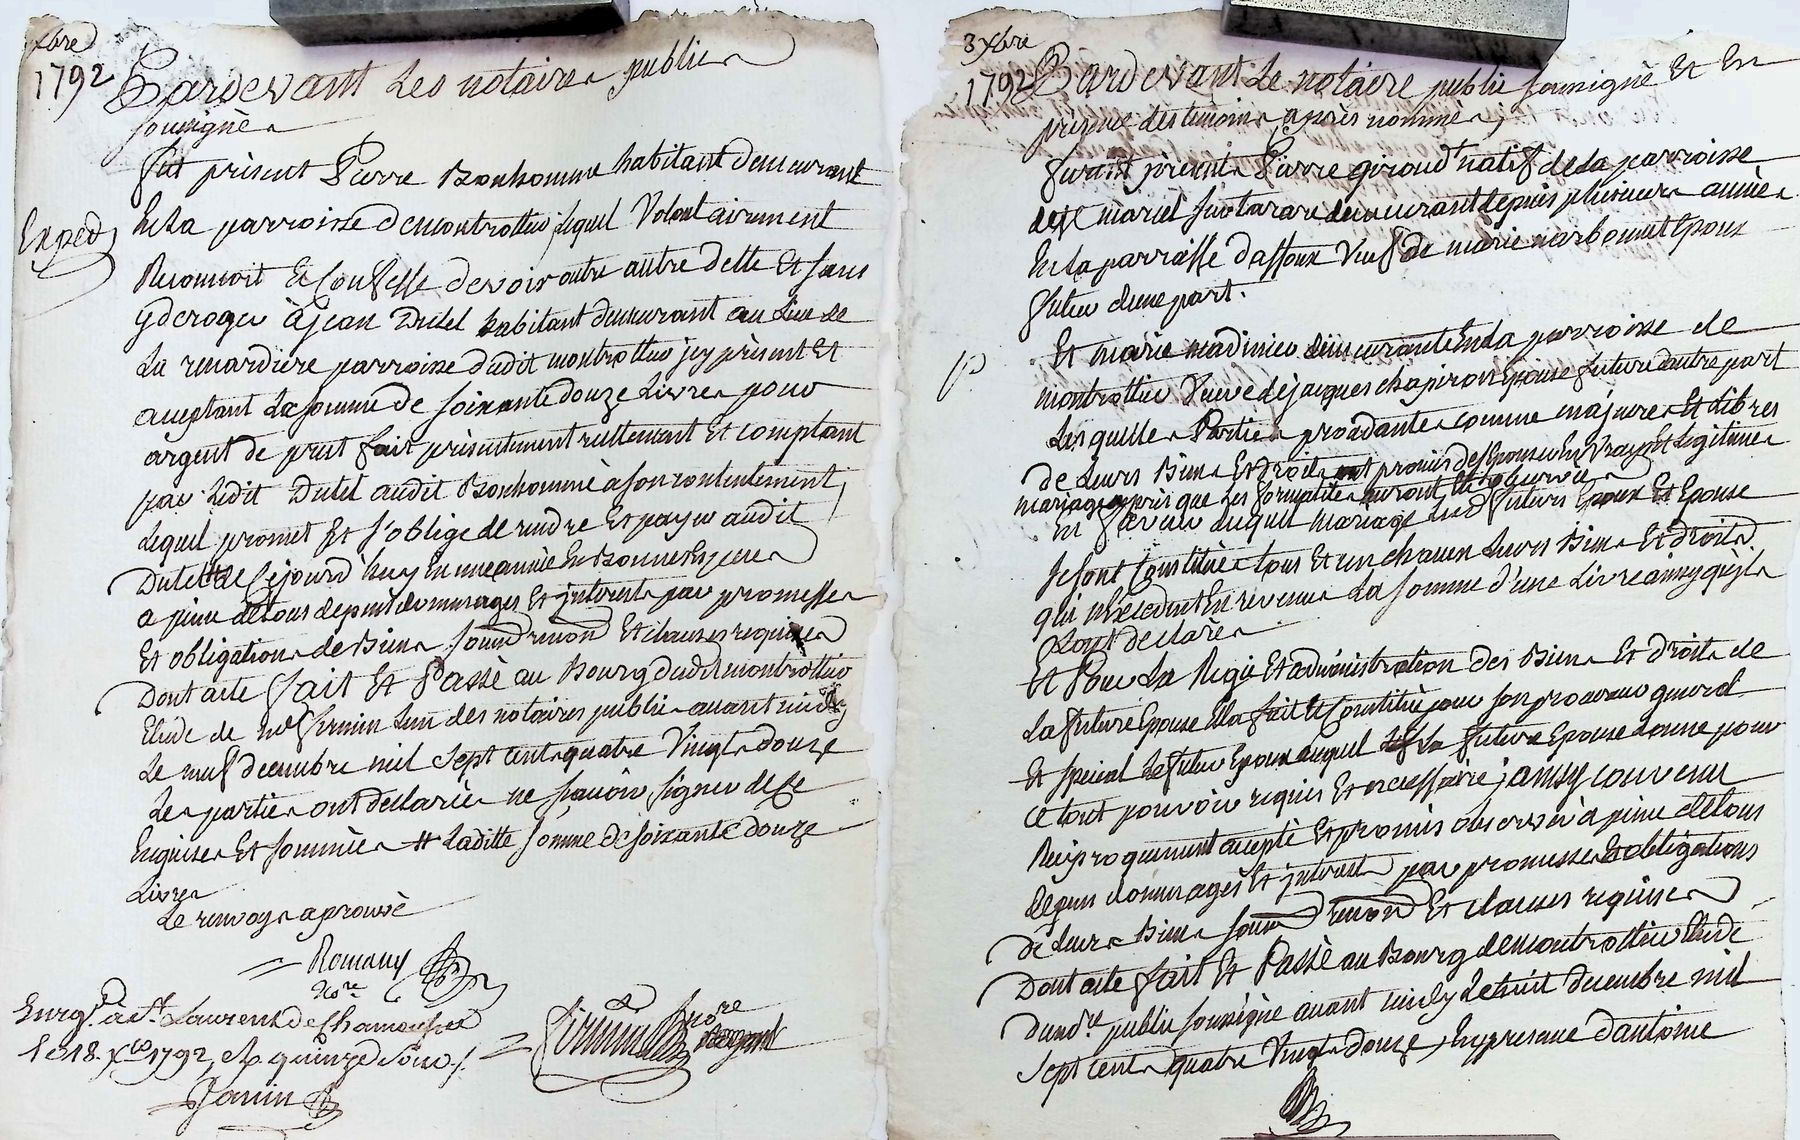 xbre
1792
Pardevant Les notaires publics
soussignés
fut présent Pierre Bonhomme habitant demeurant
Exped
En La parroisse de montrottier lequel Volontairement
Reconnoit Et Confesse devoir outre autre dette Et sans
y deroger à Jean Dutel habitant demeurant au Lieu de
La renardiere parroisse dudit montrottier jcy présent Et
aceptant La somme de soixante douze Livres pour
argent de pret fait présentement réellement Et comptant
par Ledit Dutel audit Bonhomme à son contentement,
Lequel promet Et s'oblige de rendre Et payer audit
Dutel de Cejourd'huy En une année En Bonnes Especes
a peine de tous depens dommages Et jnterests par promesses
Et obligations de Biens soumd renond Et clauses requises
Dont acte fait Et Passé au Bourg dudit montrottier
Etude de Me firmin L'un des notaires publics avant midy
Le neuf decembre mil sept cent quatre Vingt douze
Les parties ont declarés ne savoir signer de Ce
Enquises Et sommées # Laditte somme de soixante douze
Livres
Le renvoy aprouvé
Romany
Nore
Enregt. à St. Laurent de Chamousset
le 18 xbre 1792, R quinze sous
Janin
firmin Nore
3 xbre
1792
Pardevant Le notaire public soussigné Et En
présence des temoins après nommés;
furent présents Pierre giroud natif de la parroisse
de St marcel sur tarare demeurant depuis plusieurs années
En La parroisse d'affoux Veuf de marie narbonnet Epoux
futur d'une part.
Et marie madinier demeurante En La parroisse de
montrottier Veuve de jacques chapiron Epouse future d'autre part
Lesquelles Parties procedantes comme majeures Et Libres
de Leurs Biens Et droits ont promis de s'Epouser En Vray Et Legitime
mariage après que Les formalités auront Eté observées
En faveur duquel mariage Lesd futurs Epoux Et Epouse
se sont Constitués tous Et un chacun Leurs Biens Et droits
qui n'Excedent En revenus La somme d'une Livre ainsy qu'jls
L'ont declarés
Et Pour La Regie Et administration des Biens Et droits de
La future Epouse Elle a fait Et Constitué pour son procureur general
Et special Le futur Epoux auquel La future Epouse donne pour
ce tout pouvoir requis Et necessaire; ainsy convenu
Reciproquement accepté Et promis observer à peine de tous
depens dommages Et jnterests par promesses Et obligations
de Leurs Biens soumd renond Et clauses requises
Dont acte fait Et Passé au Bourg de montrottier Etude
du nore public soussigné avant midy Le huit decembre mil
sept cent quatre Vingt douze, En presence d'antoine